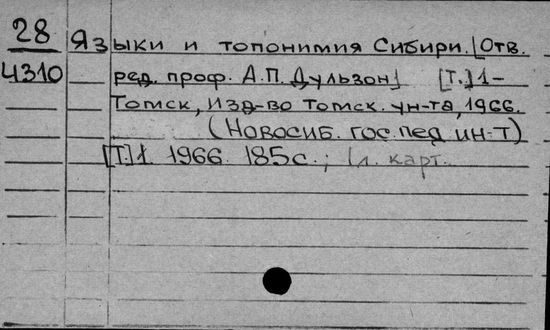 28 Языки и топонимия Сибири. [Отв.
4310 ред. проф. А.П. Дульзон] [Т.] 1-
Томск, Изд-во Томск. ун-та, 1966.
(Новосиб. гос. пед ин-т)
[Т.] 1. 1966. 185 с.; 1 л. карт.